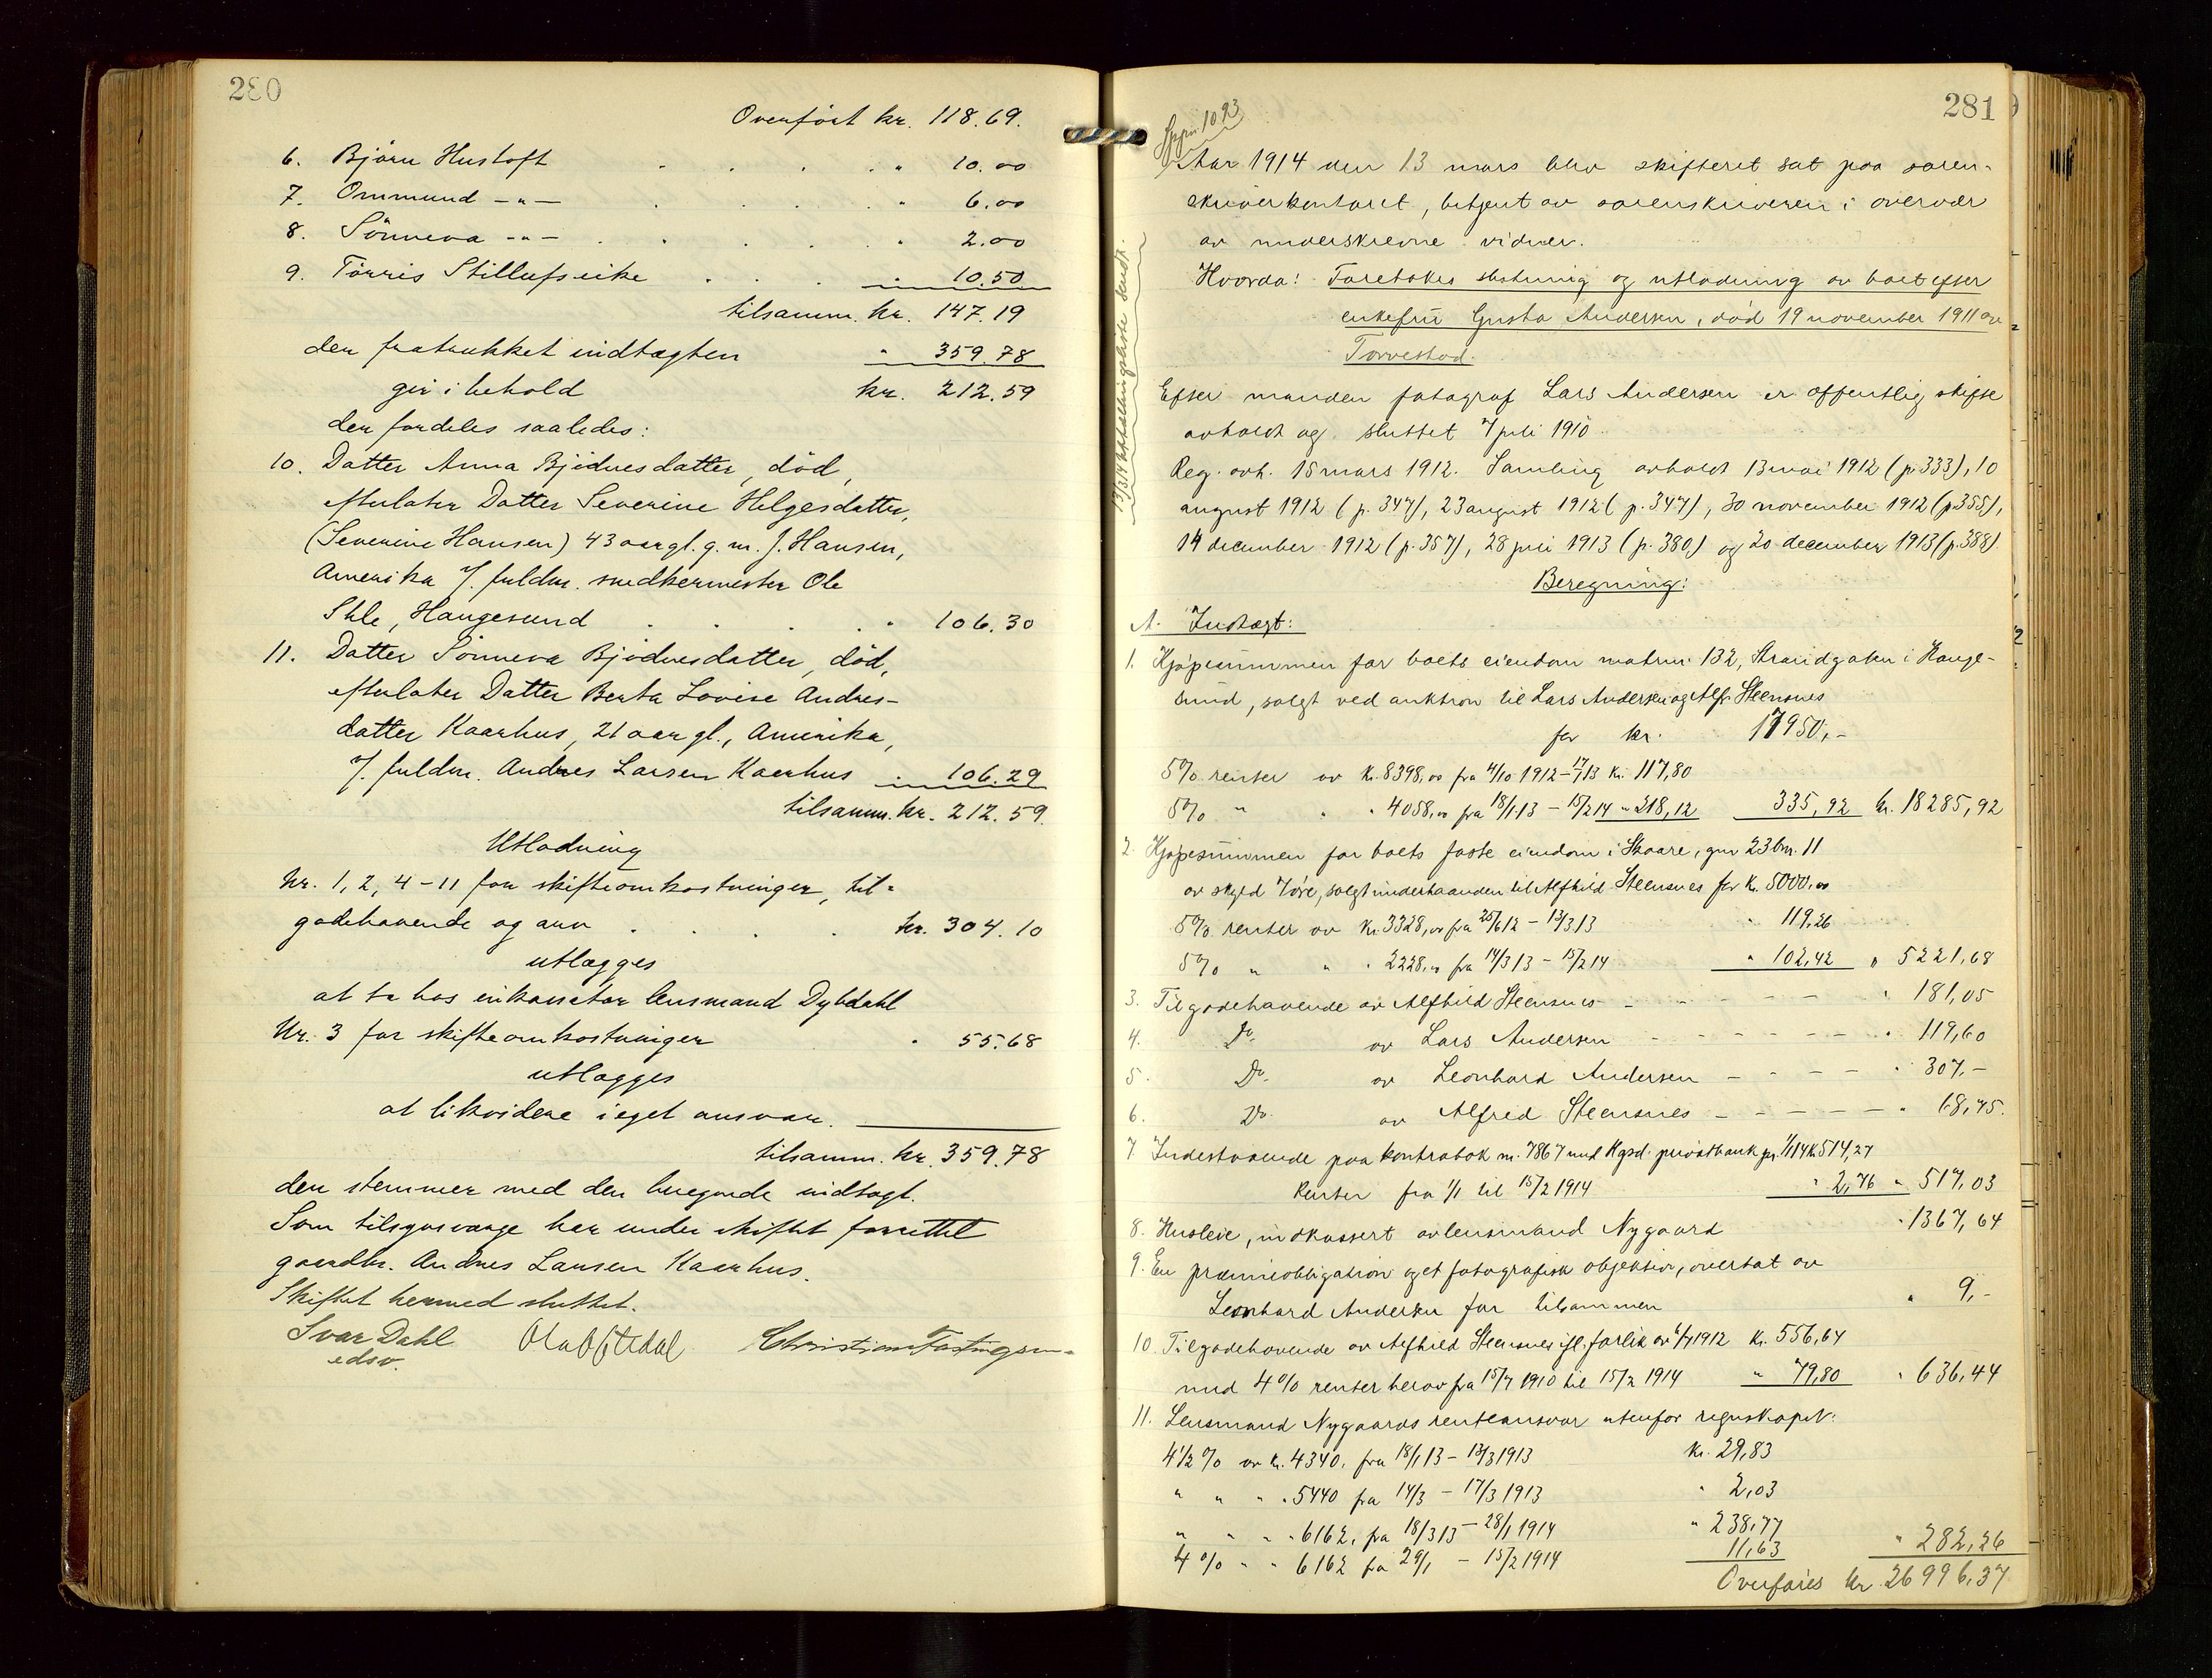 280
Overført kr. 118.69.
6. Bjørn Hustoft . . . . " 10.00
7. Ommund -"- . . . . " 6.00
8. Sönneva -"- . . . . " 2.00
9. Törris Stillufseike . . . " 10.50
tilsamm. kr. 147.19
der fratrukket indtægten " 359.78
gir i behold kr. 212.59
der fordeles saaledes:
10. Datter Anna Bjödnesdatter, död,
efterlater Datter Severine Helgesdatter,
(Severine Hansen) 43 aar gl. g. m. J. Hansen,
Amerika v/ fuldm. snedkermester Ole
Stle, Haugesund . . . . " 106.30
11. Datter Sönneva Bjödnesdatter, död,
efterlater Datter Berta Lovise Andres-
datter Kaarhus, 21 aar gl., Amerika,
v/ fuldm. Andres Larsen Kaarhus . " 106.29
tilsamm. kr. 212.59.
Utlodning
Nr. 1, 2, 4-11 for skifteomkostninger, til-
godehavende og arv . . . . kr. 304.10
utlægges
at ta hos inkassator lensmand Dybdahl
Nr. 3 for skifteomkostninger " 55.68
utlægges
at likvidere i eget ansvar.
tilsamm. kr. 359.78
der stemmer med den beregnede indtægt.
Som tilsynsværge har under skiftet forrettet
gaardbr. Andres Larsen Kaarhus.
Skiftet hermed sluttet.
Ivar Dahl
edsv.
Ola Oftedal
Christian Fastingsen
281
1093
13/3 14 sendt.
Aar 1914 den 13 mars blev skifteret sat paa soren-
skriverkontoret, betjent av sorenskriveren i overvær
av underskrevne vidner.
Hvorda: Foretokes slutning og utlodning av boet efter
enkefru Gusta Andersen, død 19 november 1911 av
Torvestad.
Efter manden fotograf Lars Andersen er offentlig skifte
avholdt og sluttet 7 juli 1910.
Reg. avh. 15 mars 1912. Samling avholdt 13 mai 1912 (p. 333), 10
august 1912 (p. 347), 23 august 1912 (p. 347), 30 november 1912 (p 355),
14 december 1912 (p. 357), 28 juni 1913 (p. 380) og 20 december 1913 (p. 388).
Beregning:
A. Indtægt:
1. Kjøpesummen for boets eiendom matrnr. 132, Strandgaten i Hauge-
sund, solgt ved auktion til Lars Andersen og Alfr. Steensnes
for kr. 17950,-
5% renter av kr. 8398,00 fra 4/10 1912 - 17/1 13 kr. 117,80
5% " " " 4058,00 fra 18/1 13 - 15/2 14 " 218,12 335,92 kr. 18285,92
2. Kjøpesummen for boets faste eiendom i Skaare, gnr 23 bnr. 11
av skyld 7 øre, solgt underhaanden til Alfhild Steensnes for kr. 5000,00
5% renter av kr. 3328,00 fra 25/6 12 - 13/3 13 " 119,26
5% " " " 2228,00 fra 14/3 13 - 15/2 14 " 102,42 " 5221,68
3. Tilgodehavende av Alfhild Steensnes - - - - - " 181,05
4. Do. av Lars Andersen - - - - - " 119,60
5. Do. av Leonhard Andersen - - - - " 307,-
6. Do. av Alfred Steensnes - - - - - " 68,75.
7. Indestaaende paa kontrabok nr. 7867 med Hgsd. privatbank pr. 1/1 14 kr 514,27
Renter fra 1/1 til 15/2 1914 " 2,76 " 517,03
8. Husleie, indkassert av lensmand Nygaard " 1367,64
9. En præmieobligation og et fotografisk objektiv, overtat av
Leonhard Andersen for tilsammen " 9,-
10. Tilgodehavende av Alfhild Steensnes ifl. forlik av 6/7 1912 kr. 556,64
med 4% renter herav fra 15/7 1910 til 15/2 1914 " 79,80 " 636,44
11. Lensmand Nygaards renteansvar utenfor regnskapet:
4 1/2 % av kr. 4340. fra 18/1 13 - 13/3 1913 kr. 29,83
" " " " 5440 fra 14/3 - 17/3 1913 " 2,03
" " " " 6162, fra 18/3 13 - 28/1 1914 " 238,77
4 % " " 6162 fra 29/1 - 15/2 1914 11,63 " 282,26
Overføres kr 26996,37